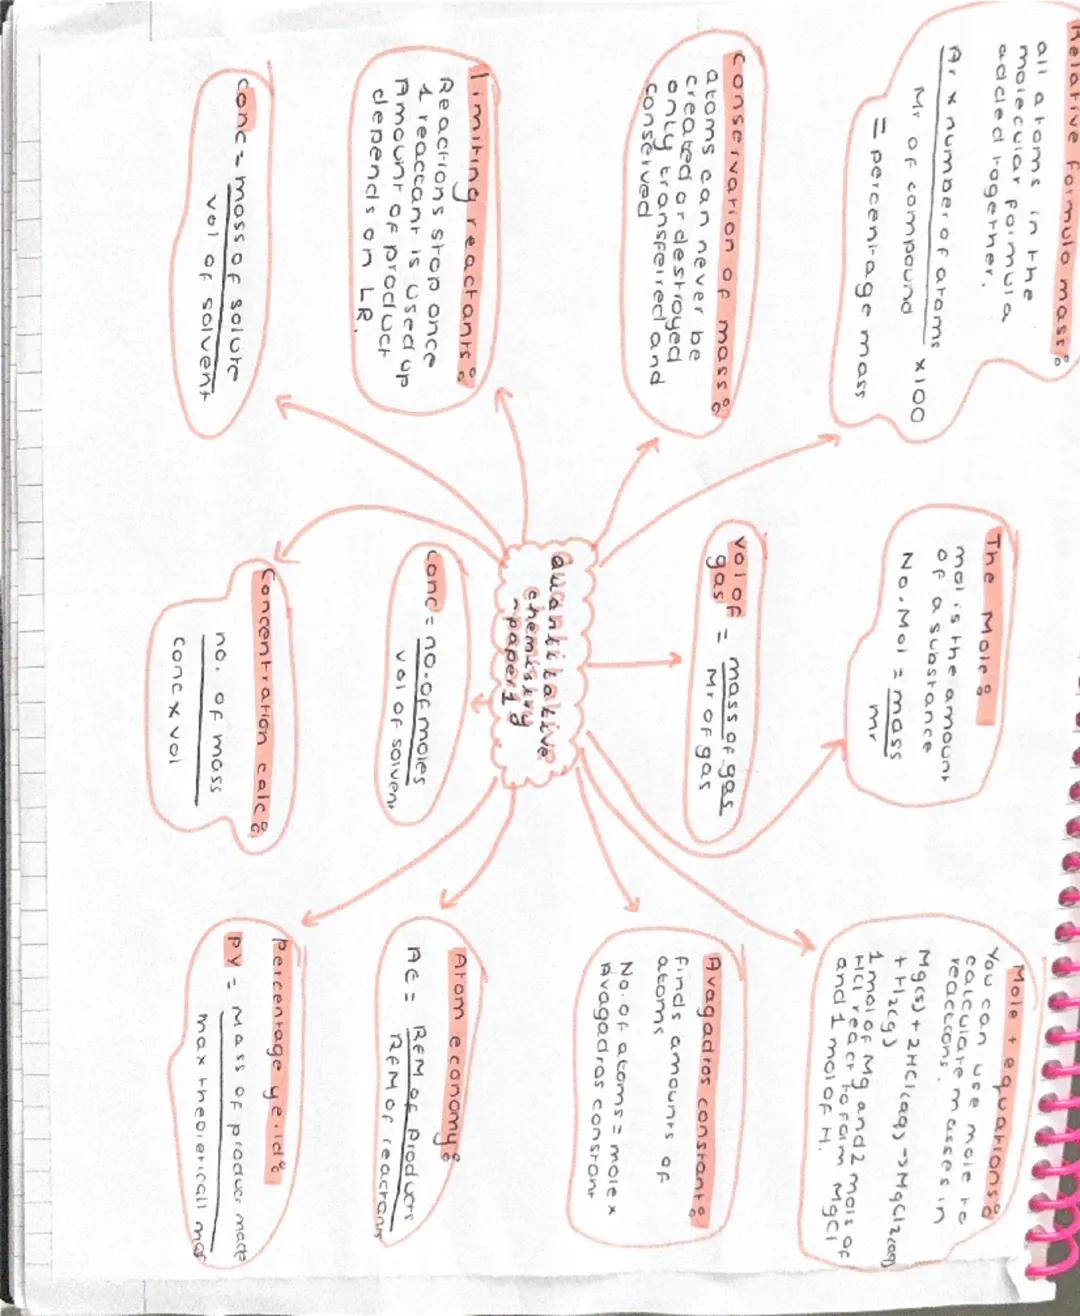 Relative formula mass:
all atoms in the
molecular formula
added together.
Ar x number of atoms x100
Mr of compound
= percentage mass
The Mole:
mol is the amount
of a substance
No. Mol = mass
mr
Mole + equations:
You can use mole to
calculate masses in
reactions.
Mg(s) + 2HCl(aq) -> MgCl2(aq)
+ H2(g)
1 mol of Mg and 2 mols of
HCl react to form MgCl
and 1 mol of H.
Conservation of mass:
atoms can never be
created or destroyed
only transferred and
conserved
vol of
gas = mass of gas
Mr of gas
Avagadros constant:
finds amounts of
atoms
No. of atoms = mole x
Avagadros constant
Quantitative
chemistry
~paper 1
limiting reactants:
Reactions stop once
1 reactant is used up
Amount of product
depends on LR.
conc = no. of moles
vol of solvent
Atom economy:
AE = RFM of products
RFM of reactants
conc = mass of solute
vol of solvent
Concentration calc:
no. of mass
conc x vol
percentage yeild:
PY = Mass of product made
max theoreticall mas